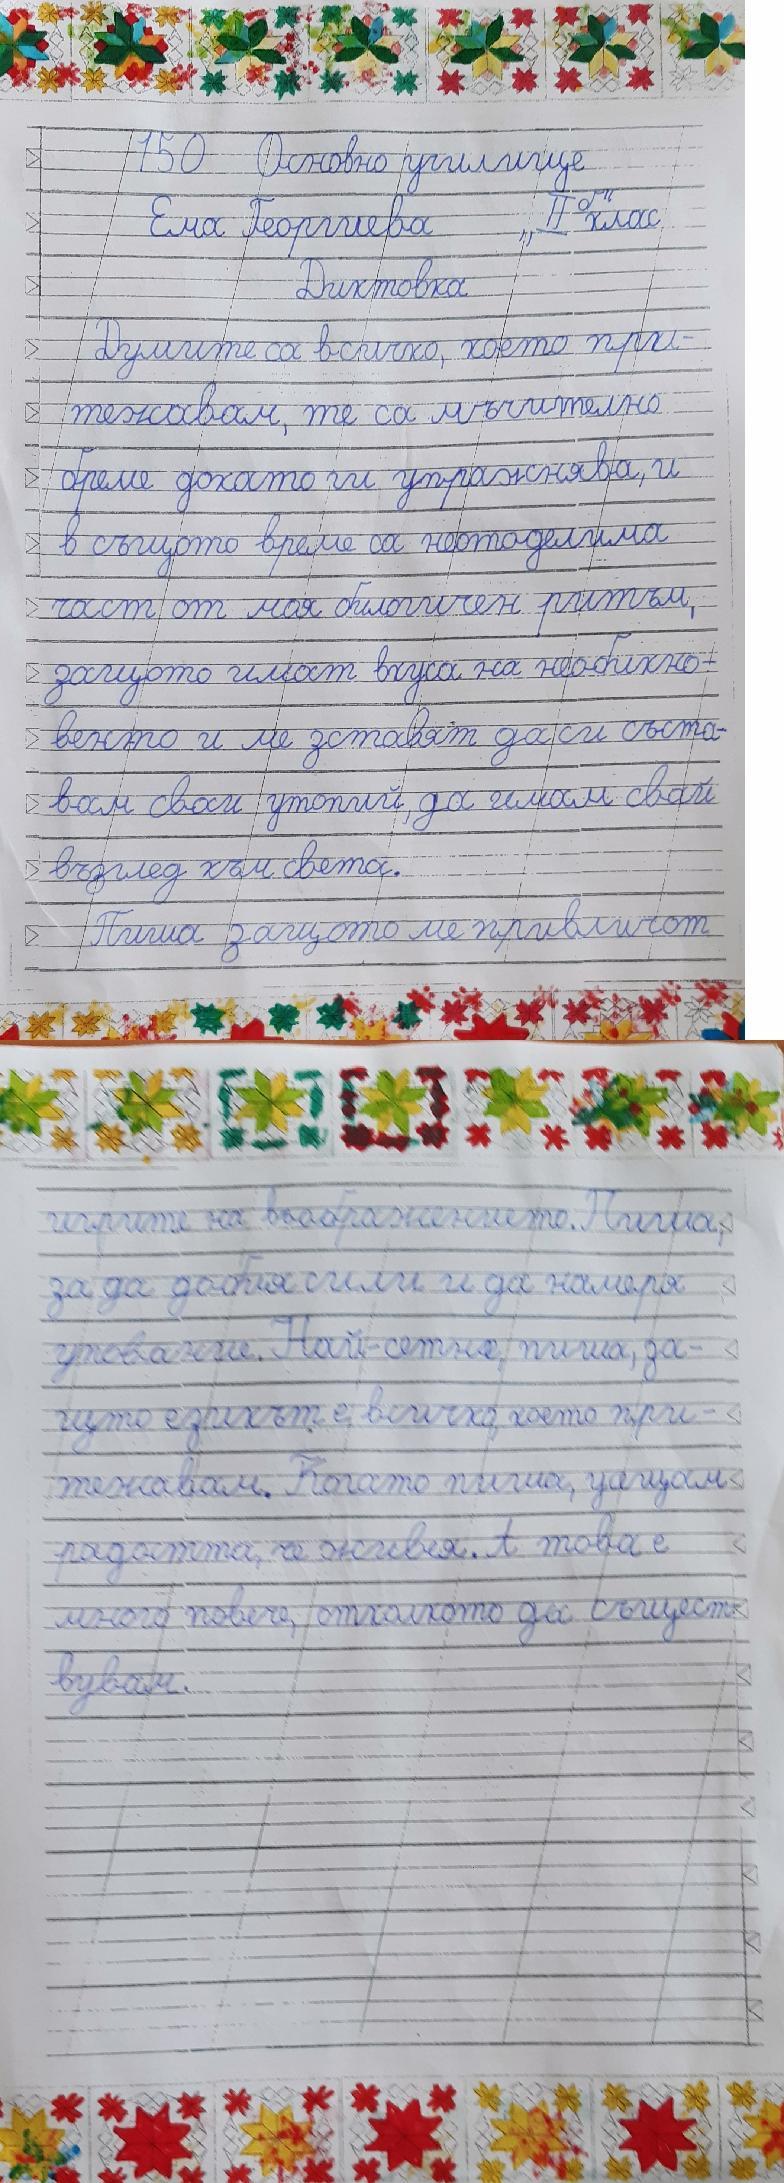 150 Основно училище
Ема Георгиева „II б" клас
Диктовка
Думите са всичко, което при-
тежавам, те са мъчително
бреме докато ги упражнява, и
в същото време са неотоделима
част от моя билогичен ритъм,
защото имат вкуса на необикно-
венто и ме зставят да си съста-
вам свои утопий, да имам свой
възглед към света.
Пиша защото ме привличат
игрите на въображението. Пиша,
за да добия сили и да намеря
упование. Най-сетне, пиша, за-
щото езикът е, всичко, което при-
тежавам. Когато пиша, усещам
радостта, че живея. А това е
много повече, отколкото да същест-
вувам.